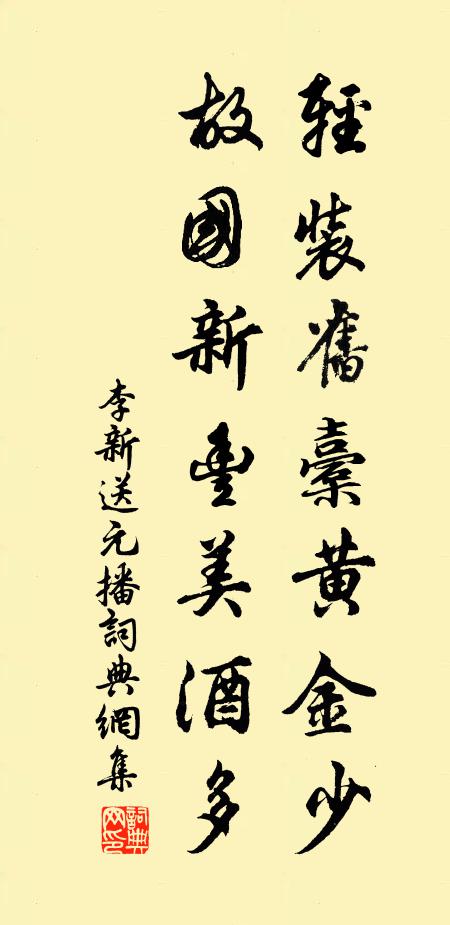 輕裝舊橐黃金少
故國新豐美酒多
李新送元播詞典網集
詞典
网印